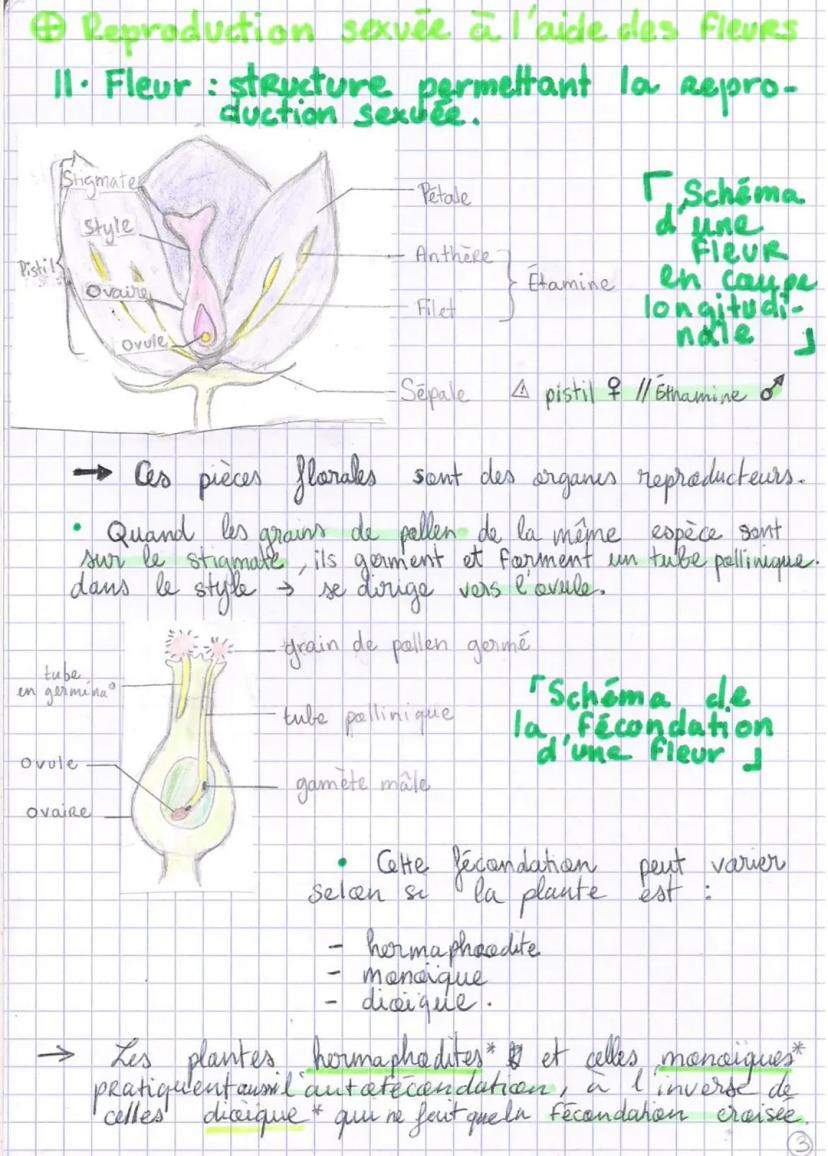 ⊕ Reproduction sexuée à l'aide des fleurs
II. Fleur : structure permettant la repro-
duction sexuée.
Stigmate
Style
Pistil
Ovaire
ovule
Pétale
Anthère
Filet
Étamine
Sépale
「Schéma
d'une
fleur
en coupe
longitudi-
nale」
⚠ pistil ♀ // Éthamine ♂
→ Ces pièces florales sont des organes reproducteurs.
• Quand les grains de pollen de la même espèce sont
sur le stigmate, ils germent et forment un tube pollinique.
dans le style → se dirige vers l'ovule.
grain de pollen germé
tube
en germina°
tube pollinique
ovule
gamète mâle
ovaire
「Schéma de
la fécondation
d'une fleur」
• Cette fécondation peut varier
selon si la plante est :
- hermaphrodite
- monoïque
- dioïque.
→ Les plantes hermaphodites* et celles monoïques*
pratiquent aussi l'autofécondation, à l'inverse de
celles dioïque* qui ne fait que la fécondation croisée.
3